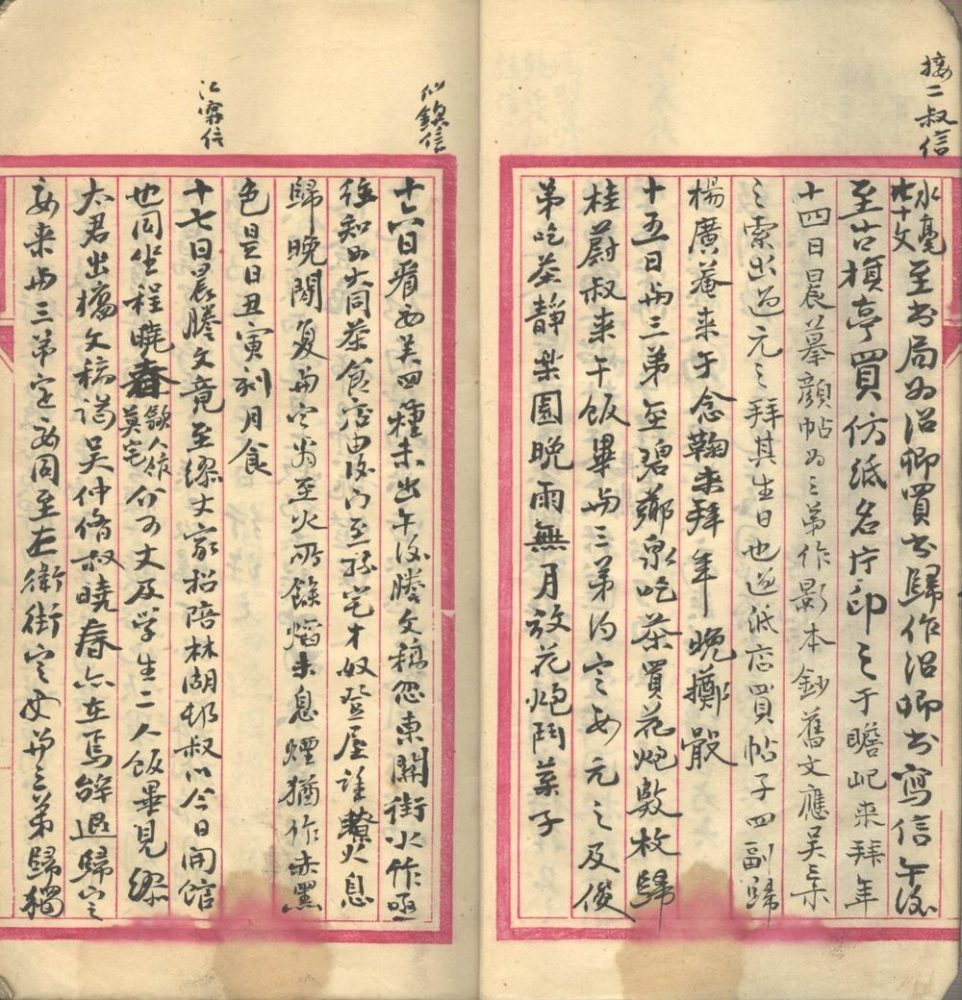 接二叔信
水毫
七十文
至书局为沼卿買书歸作沼卿书寫信午後
至古槙亭買仿紙名片印之于瞻屺来拜年
十四日晨摹顔帖为三弟作影本鈔舊文應吴
之索出过元之拜其生日也过紙店買帖子四副歸
楊廣菴来于念鞠来拜年 晚擲骰
十五日与三弟至碧薌泉吃茶買花炮数枚歸
桂蔚叔来午飯畢与三弟约定安元之及俊
弟吃茶静樂園晚雨無月放花炮鬥葉子
仙鎮信
十六日看四種未出午後謄文稿忽東關街火作亟
往知大同茶食店由後门至孫宅才奴登屋望火息
歸晚間复与定为至火所餘熖未息煙猶作赤黑
色是日丑寅刻月食
江寧信
十七日晨謄文竟至繆丈家招陪林湖邨叔以今日開館
也同坐程曉春
歙人館
英宅
份丈及学生二人飯畢見繆
太君出撝文稿谒吴仲脩叔曉春亦在焉辞退歸定
安来与三弟定安同至左衛街定安与三弟歸獨